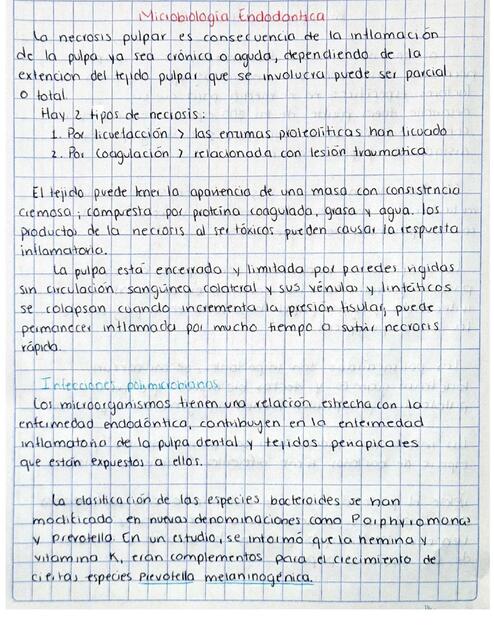 Microbiología Endodontica
La necrosis pulpar es consecuencia de la inflamación
de la pulpa ya sea crónica o aguda, dependiendo de la
extencion del tejido pulpar que se involucra puede ser parcial
o total.
Hay 2 tipos de necrosis:
1. Por licuefacción > las enzimas proteoliticas han licuado
2. Por coagulación > relacionada con lesión traumatica
El tejido puede tener la apariencia de una masa con consistencia
cremosa, compuesta por proteina coagulada, grasa y agua. los
productos de la necrosis al ser tóxicos pueden causar la respuesta
inflamatoria.
La pulpa está encerrada y limitada por paredes rigidas
sin circulación sanguinea colateral y sus vénulas y linfáticos
se colapsan cuando incrementa la presión tisular, puede
permanecer inflamada por mucho tiempo o sufrir necrosis
rápida.
Infecciones polimicrobianas
Los microorganismos tienen una relación estrecha con la
enfermedad endodóntica, contribuyen en la enfermedad
inflamatoria de la pulpa dental y tejidos periapicales
que están expuestos a ellos.
La clasificación de las especies bacteroides se han
modificado en nuevas denominaciones como Porphyromonas
y prevotella. En un estudio, se informó que la hemina y
vitamina K, eran complementos para el crecimiento de
ciertas especies Prevotella melaninogénica.